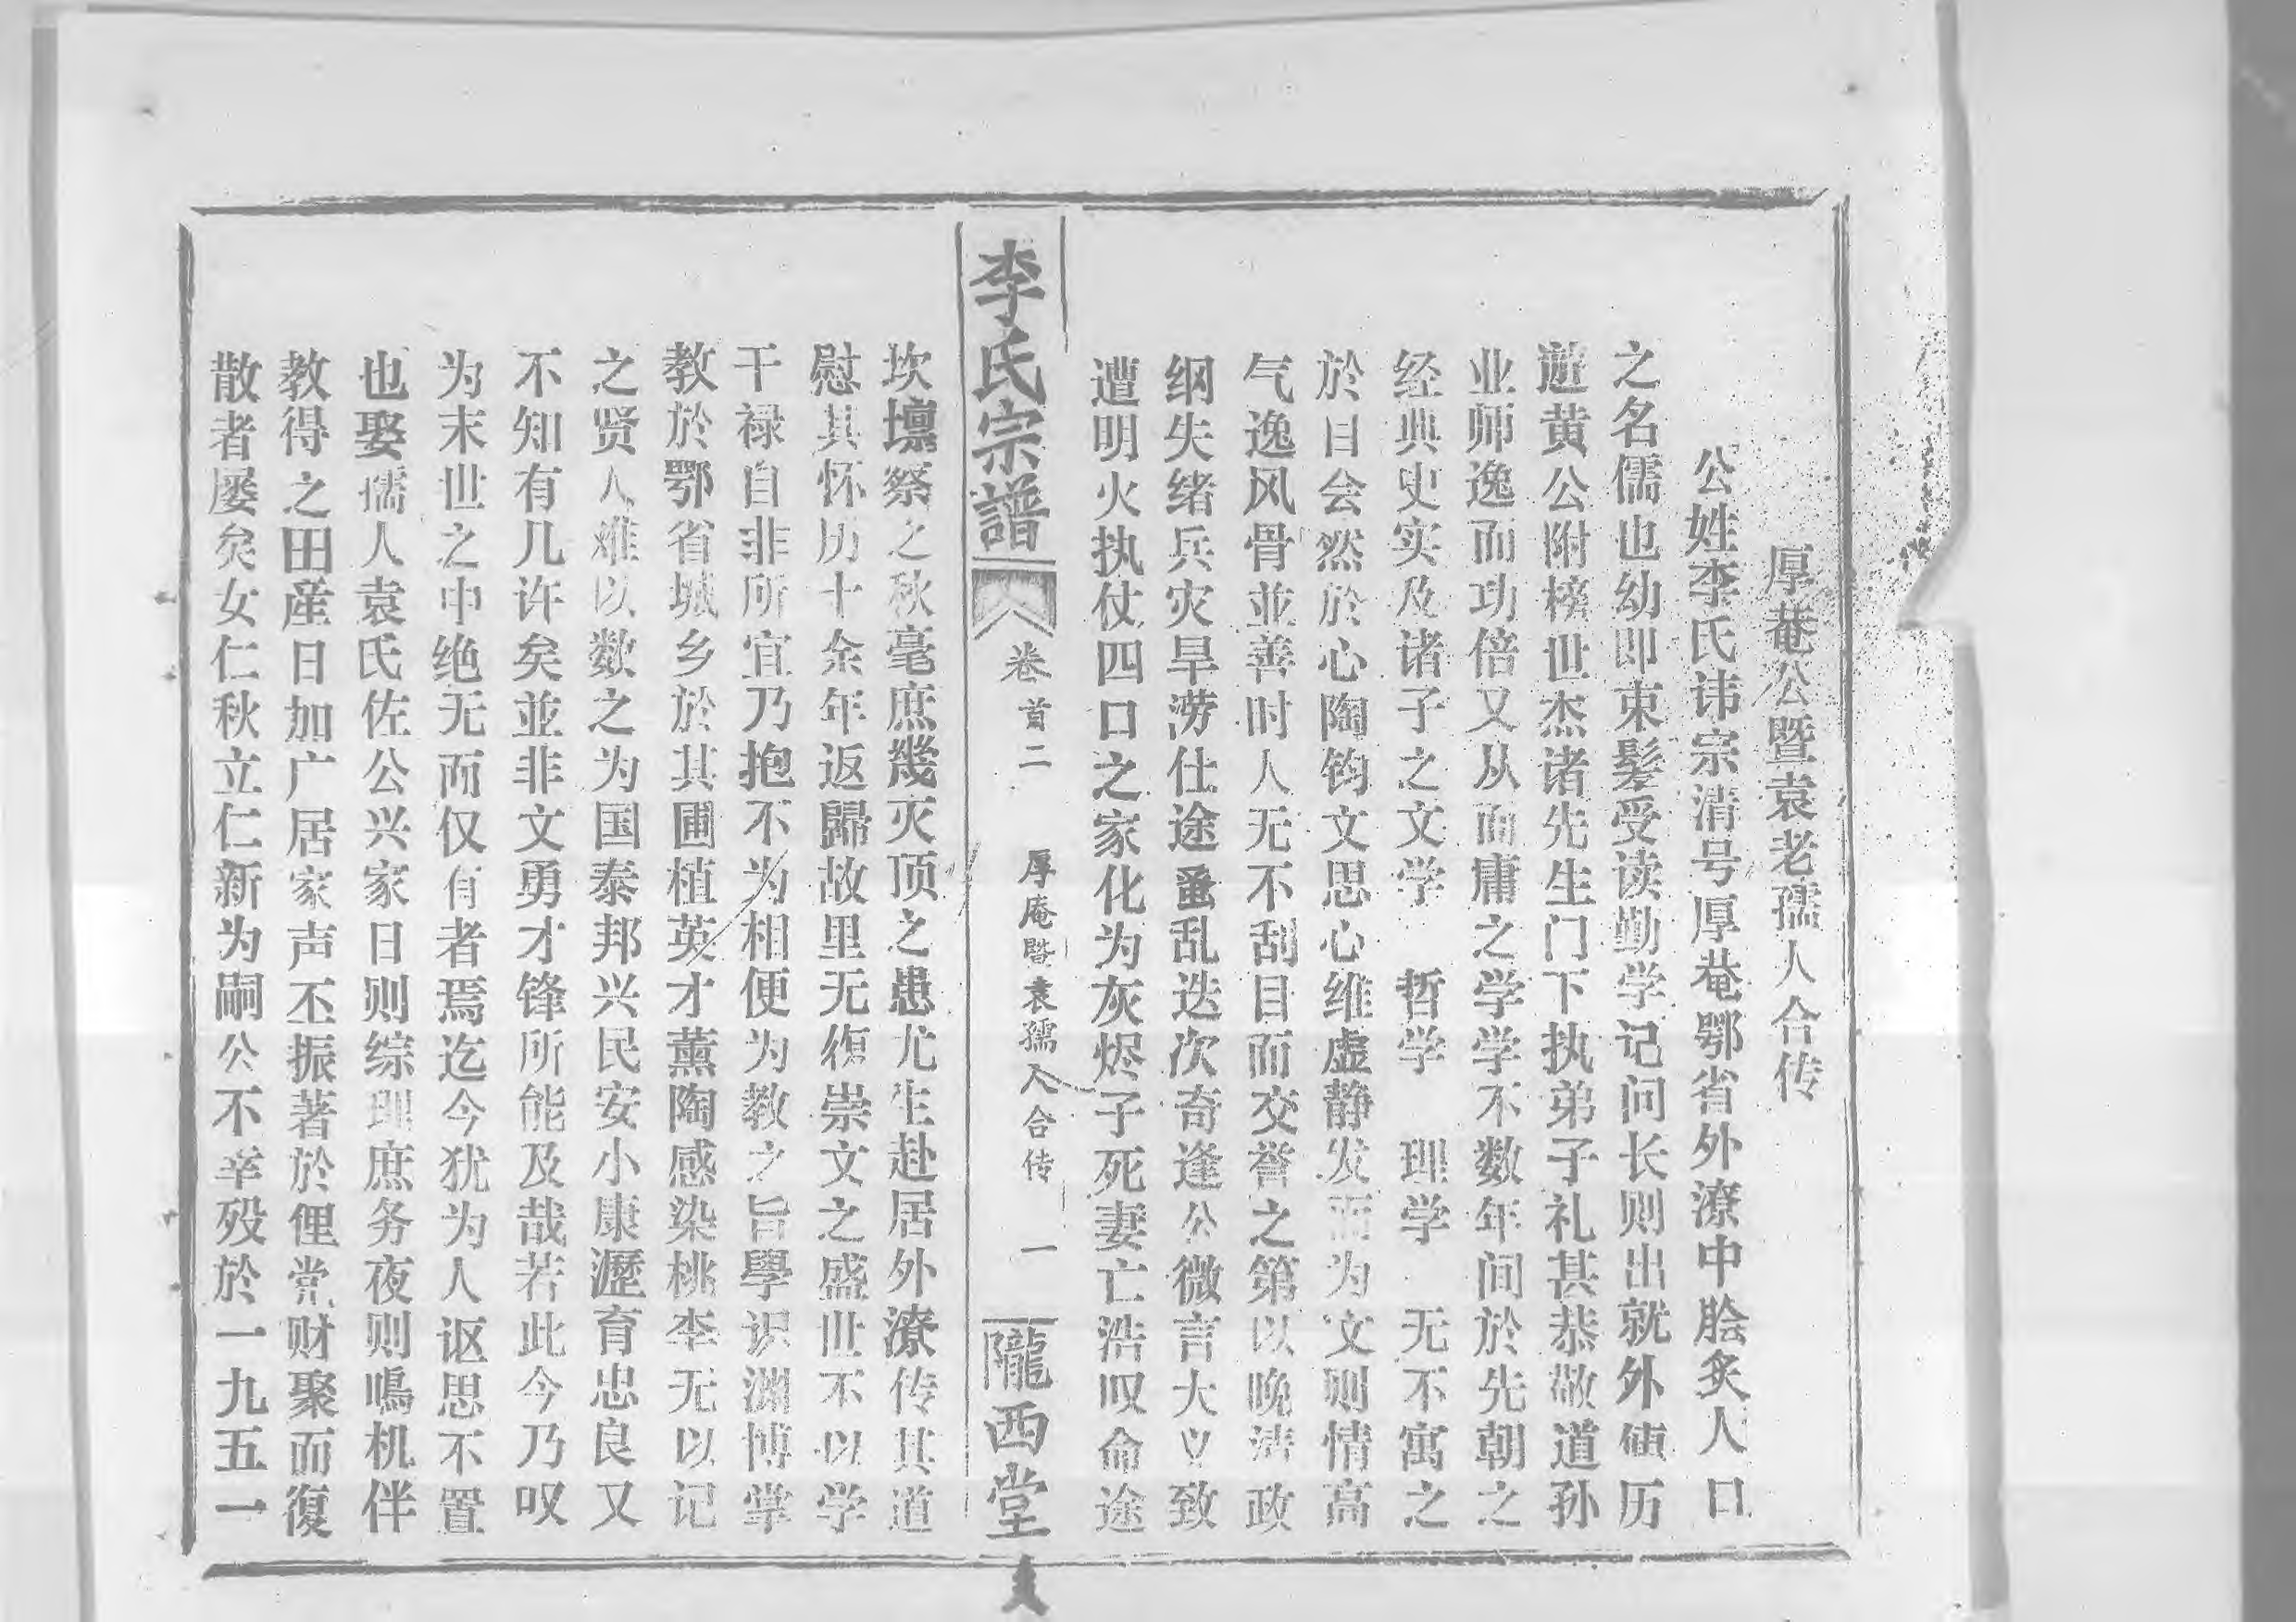 厚菴公暨袁老孺人合传
公姓李氏讳宗清号厚菴鄂省外潦中脍炙人口
之名儒也幼即束髮受读勤学记问长则出就外傅历
遊黄公附榜世杰诸先生门下执弟子礼甚恭敬道孙
业师逸而功倍又从而庸之学学不数年间於先朝之
经典史实及诸子之文学 哲学 理学 无不寓之
於目会然於心陶钧文思心维虚静发而为文则情高
气逸风骨並善时人无不刮目而交誉之第以晚清政
纲失绪兵灾旱涝仕途蚤乱迭次奇逢公微言大义致
遭明火执仗四口之家化为灰烬子死妻亡浩叹命途
李氏宗譜 卷首二 厚庵暨袁孺人合传 一 隴西堂
坎壈祭之秋毫庶幾灭顶之患尤生赴居外潦传其道
慰其怀历十余年返歸故里无復崇文之盛世不以学
干禄自非所宜乃抱不为相便为教之旨學识渊博掌
教於鄂省城乡於其圃植英才薰陶感染桃李无以记
之贤人难以数之为国泰邦兴民安小康瀝育忠良又
不知有几许矣並非文勇才锋所能及哉若此今乃叹
为末世之中绝无而仅有者焉迄今犹为人讴思不置
也娶孺人袁氏佐公兴家日则综理庶务夜则鳴机伴
教得之田産日加广居家声丕振著於俚党财聚而復
散者屡矣女仁秋立仁新为嗣公不幸殁於一九五一